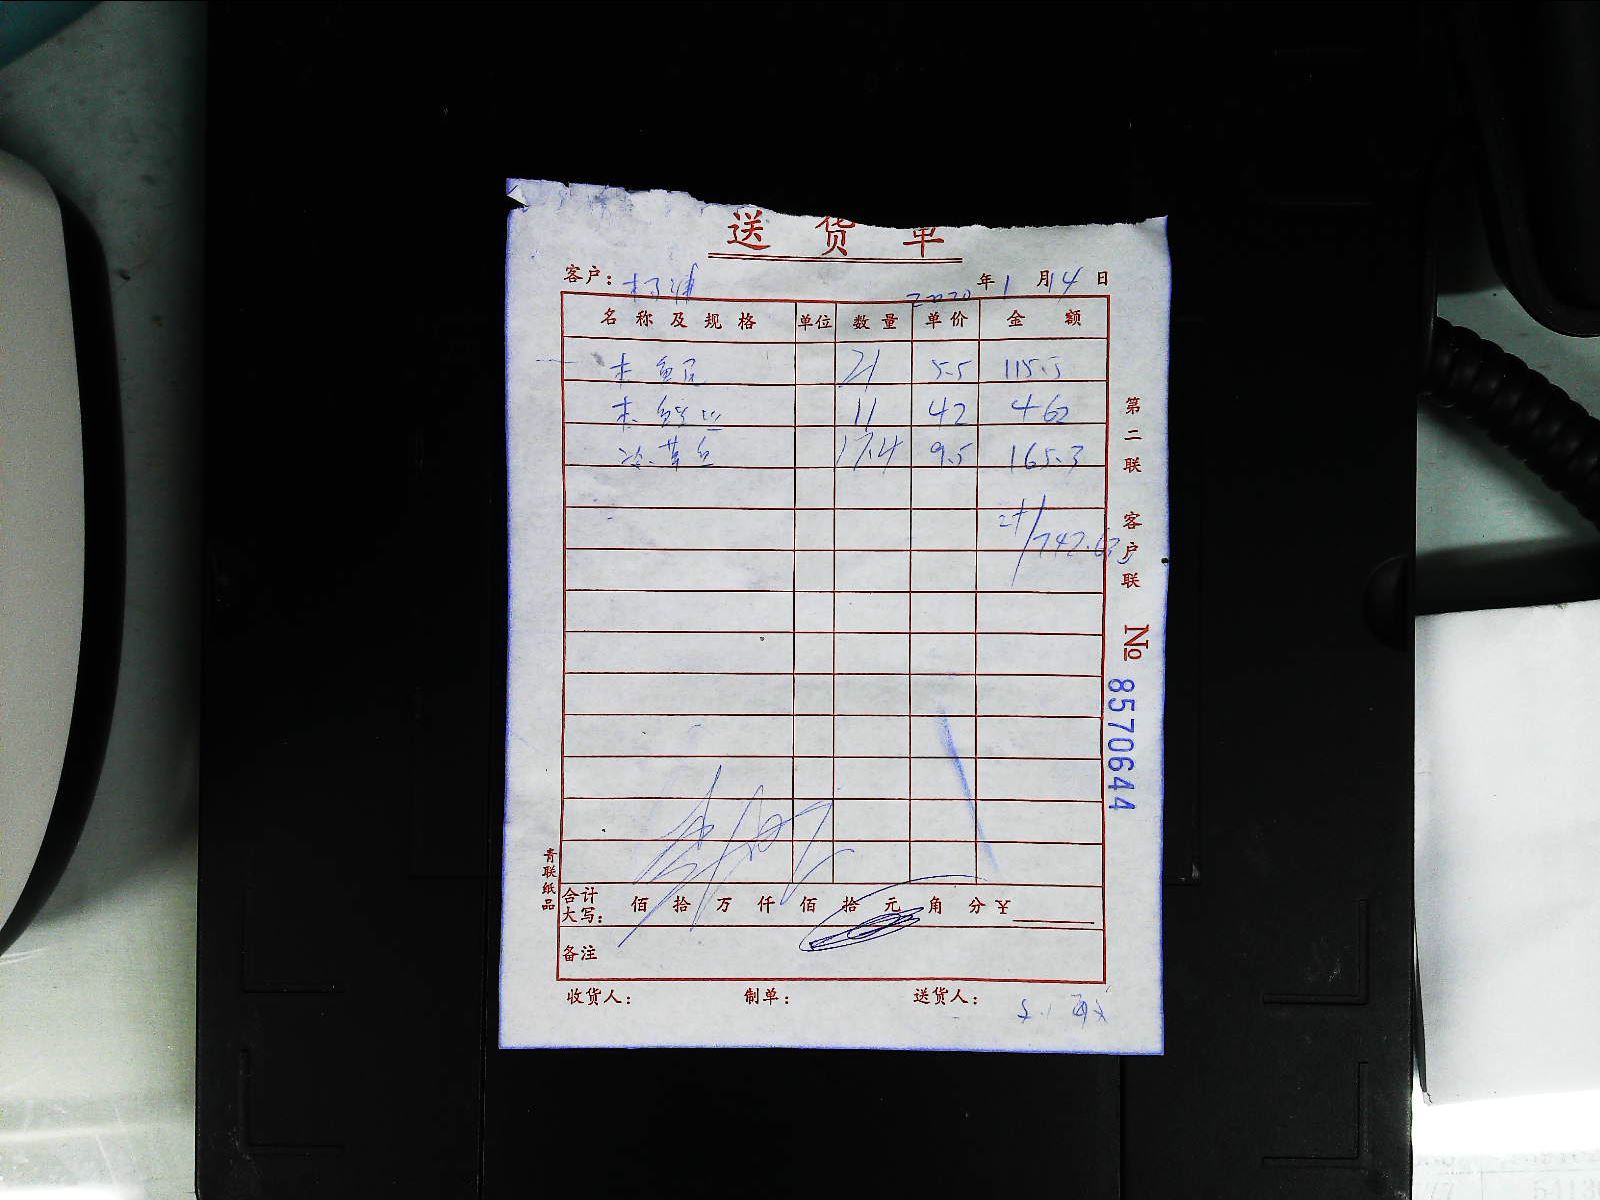 送货单
客户：杨浦 2020年1月14日
名称及规格 单位 数量 单价 金额
21 5.5 115.5
11 42 462
冷草鱼 17.4 9.5 165.3
计/742.8
合计大写： 佰 拾 万 仟 佰 拾 元 角 分 ¥
备注
收货人： 制单： 送货人：
第二联 客户联
№ 8570644
青联纸品